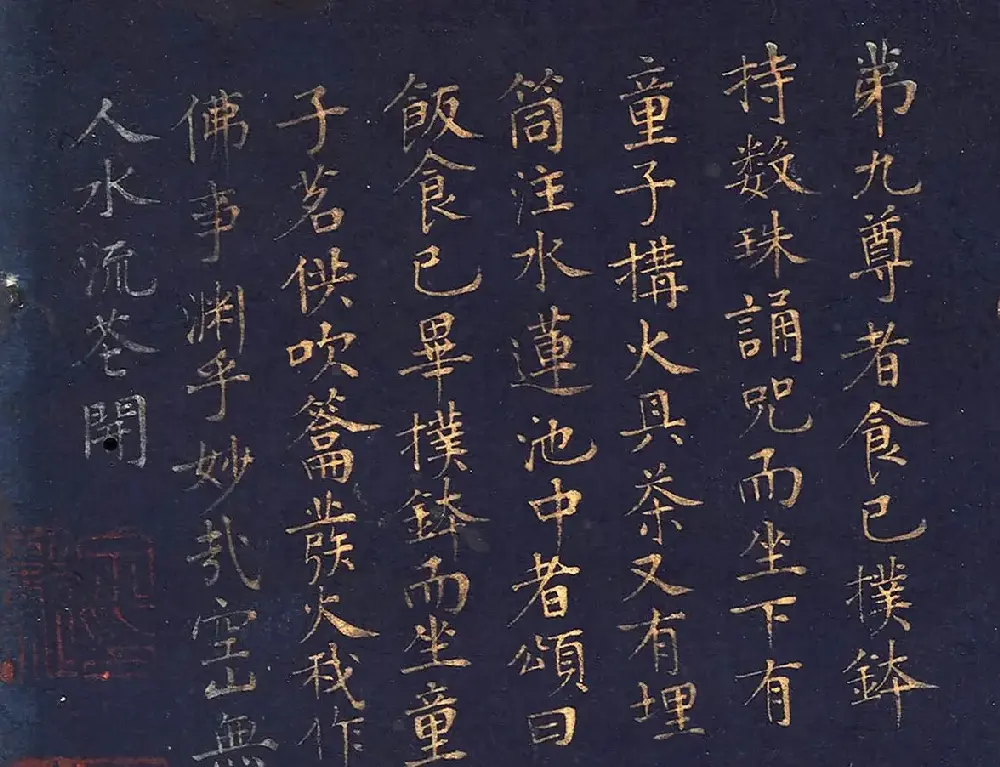 弟九尊者食已撲鉢
持数珠誦咒而坐下有
童子構火具茶又有埋
筒注水蓮池中者頌曰
飯食已畢撲鉢而坐童
子茗供吹籥發火我作
佛事渊乎妙哉空山無
人水流花開